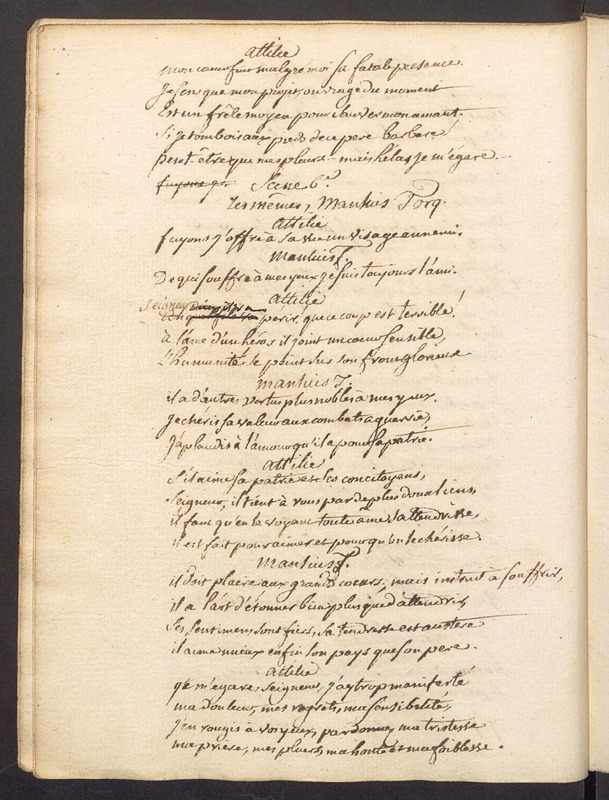 attilie
mon coeur fuit malgré moi sa fatale presence.
Je sens que mon projet ouvrage du moment
Est un frêle moyen pour sauver mon amant.
Si je tombois aux pieds de ce pere barbare!
peut être que mes pleurs.. mais helas je m'égare.
fuyons Scene 6e.
Les mêmes, Manlius Torq.
attilie
fuyons j'offre à sa vue un visage ennemi.
Manlius T.
De qui souffre à mes yeux je suis toujours l'ami.
attilie
Seigneur
perir, que ce coup est terrible!
à l'âme d'un héros il joint un coeur sensible,
L'humanité se peint sur son front glorieux
manlius T.
il a d'autres vertus plus nobles à mes yeux.
Je chéris sa valeur aux combats aguerrie,
J'applaudis à l'amour qu'il a pour sa patrie.
attilie
S'il aime sa patrie et ses concitoyens,
Seigneur, il tient à vous par de plus doux liens,
il faut qu'en le voyant toute âme s'attendrisse,
il est fait pour aimer et pour qu'on le chérisse.
Manlius T.
il doit plaire aux grands coeurs, mais instruit à souffrir,
il a l'art d'étonner bien plus que d'attendrir,
Ses sentimens sont fiers, sa tendresse est austere
il aime mieux enfin son pays que son pere.
attilie
je m'egare, Seigneur, j'ay trop manifesté
ma douleur, mes regrets, ma sensibilité,
J'en rougis à vos yeux, pardonnez ma tristesse
ma priere, mes pleurs, ma honte et ma foiblesse.